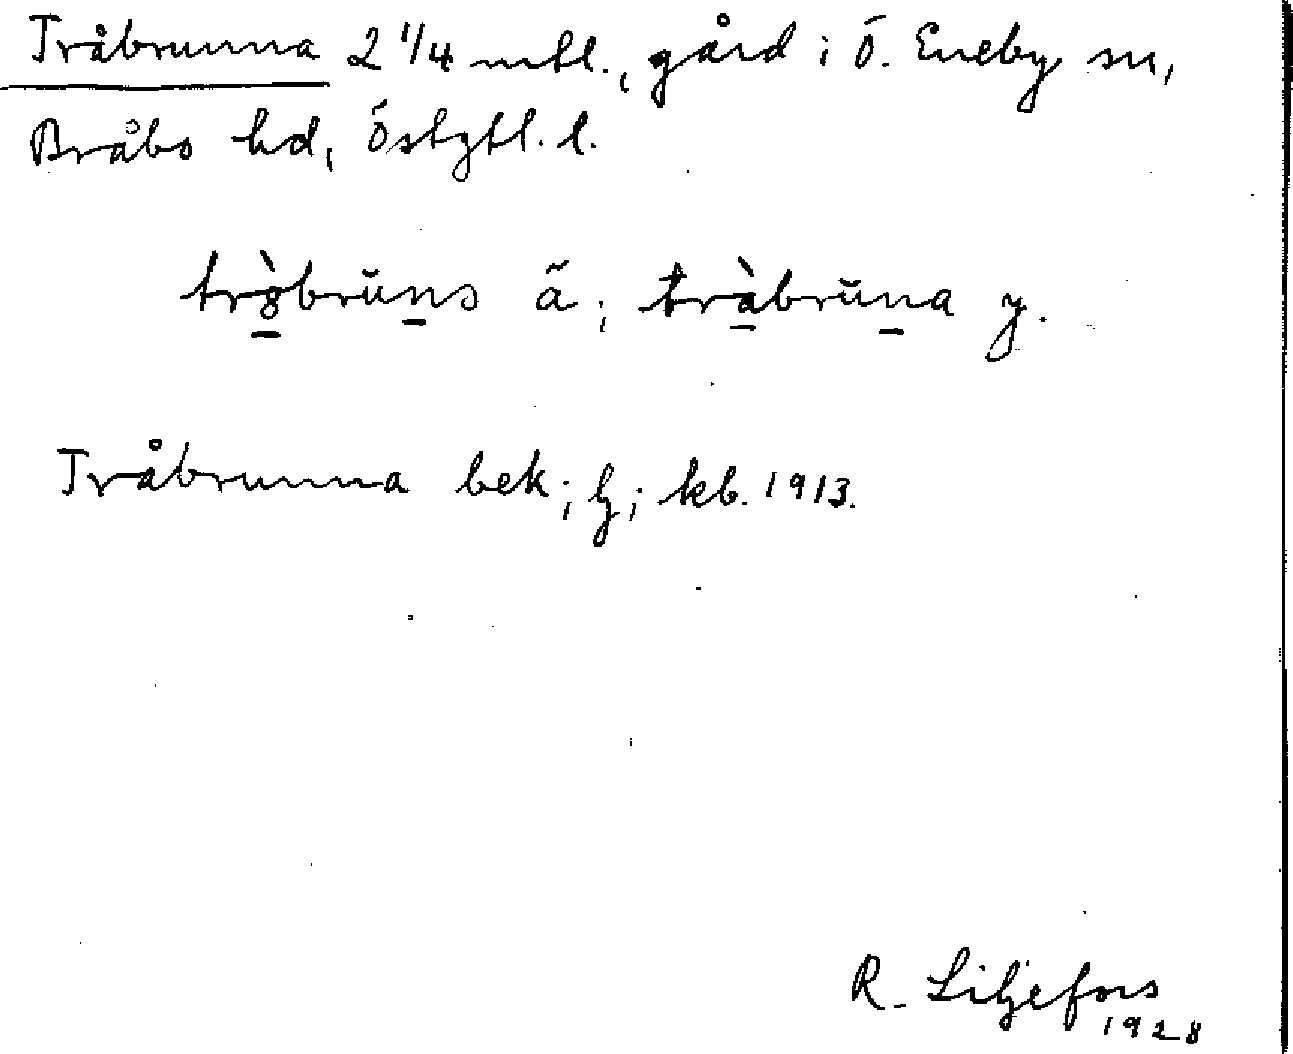 Tråbrunna 2 1/4 mtl., gård i Ö. Eneby sn,
Bråbo hd, Östgtl. l.
trò̱brŭṉs ä; trà̱brŭṉa y.
Tråbrunna bek; ; kb. 1913.
R. Liljefors
1928